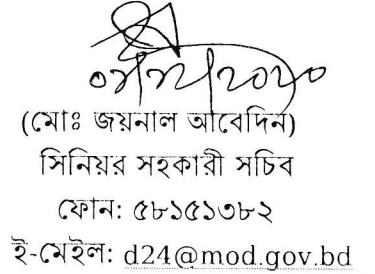 (মোঃ জয়নাল আবেদিন)
সিনিয়র সহকারী সচিব
ফোন: ৫৮১৫১৩৮২
ই-মেইল: d24@mod.gov.bd